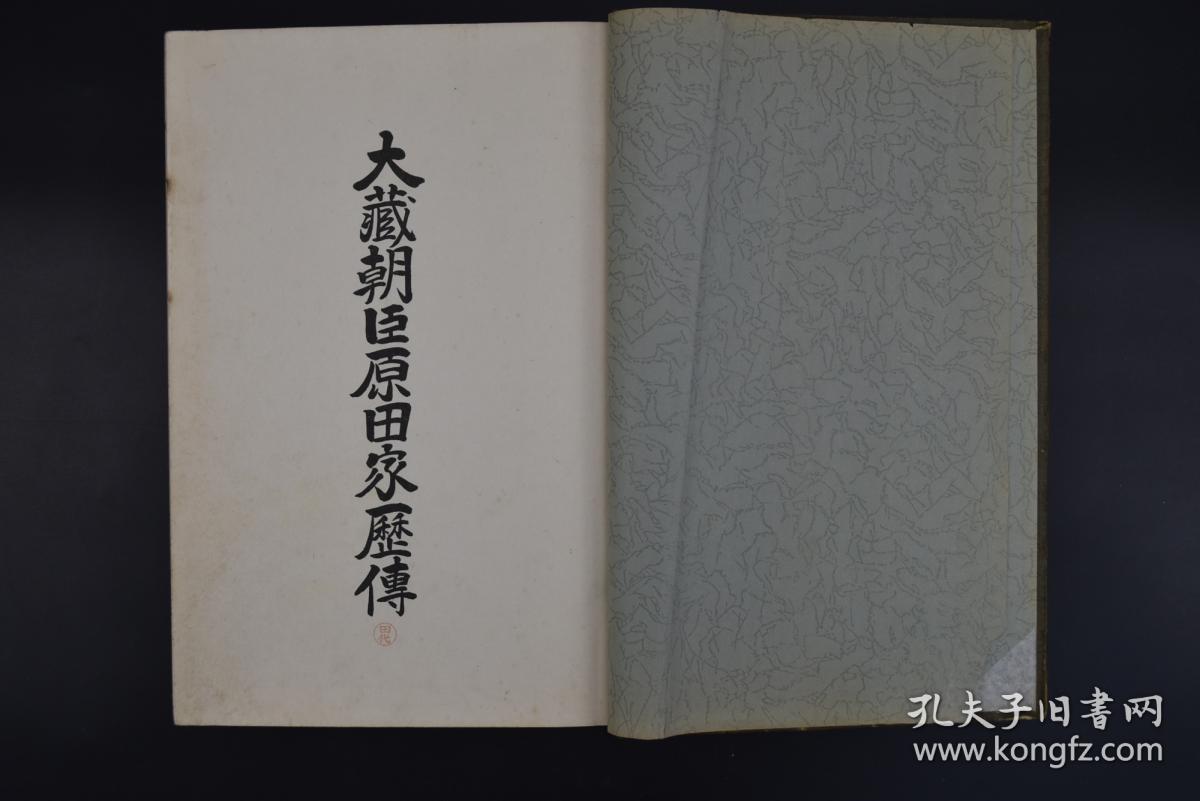 大藏朝臣原田家歷傳
田代
孔夫子旧書网
www.kongfz.com